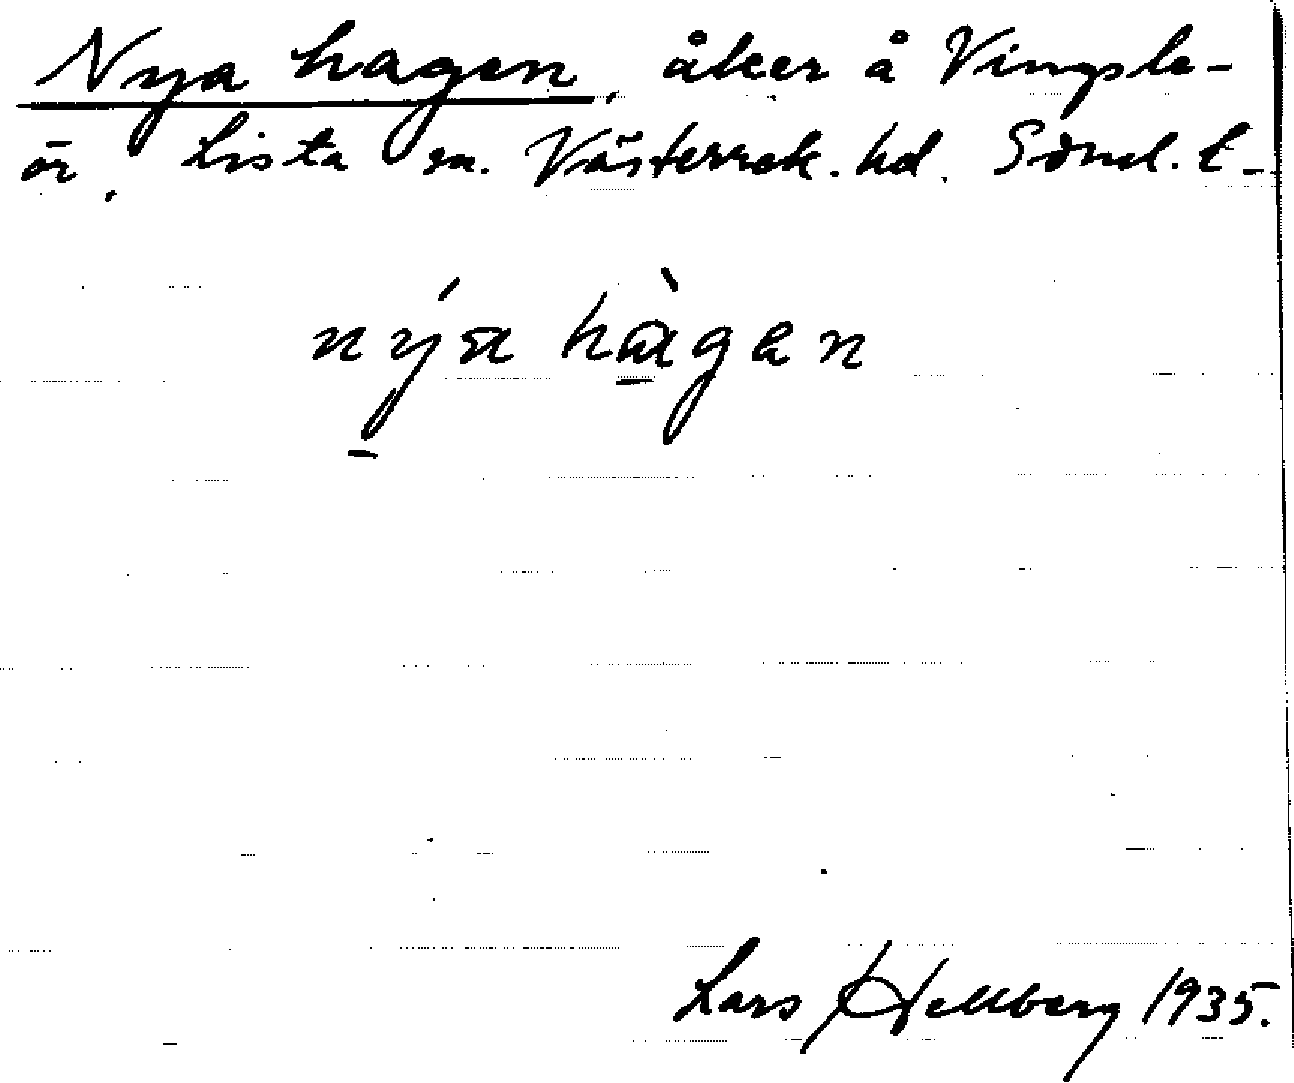 Nya hagen, åker å Vingsle-
ör, Lista sn. Västerrek. hd. Söml. l-
nýa hàgen
Lars Hellberg 1935.